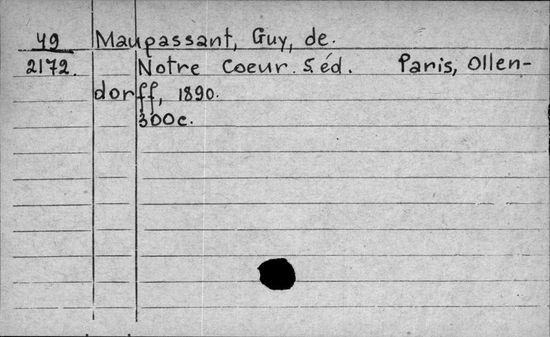 49 Maupassant, Guy, de.
2172. Notre Coeur. 5 éd. Paris, Ollen-
dorff, 1890.
300c.